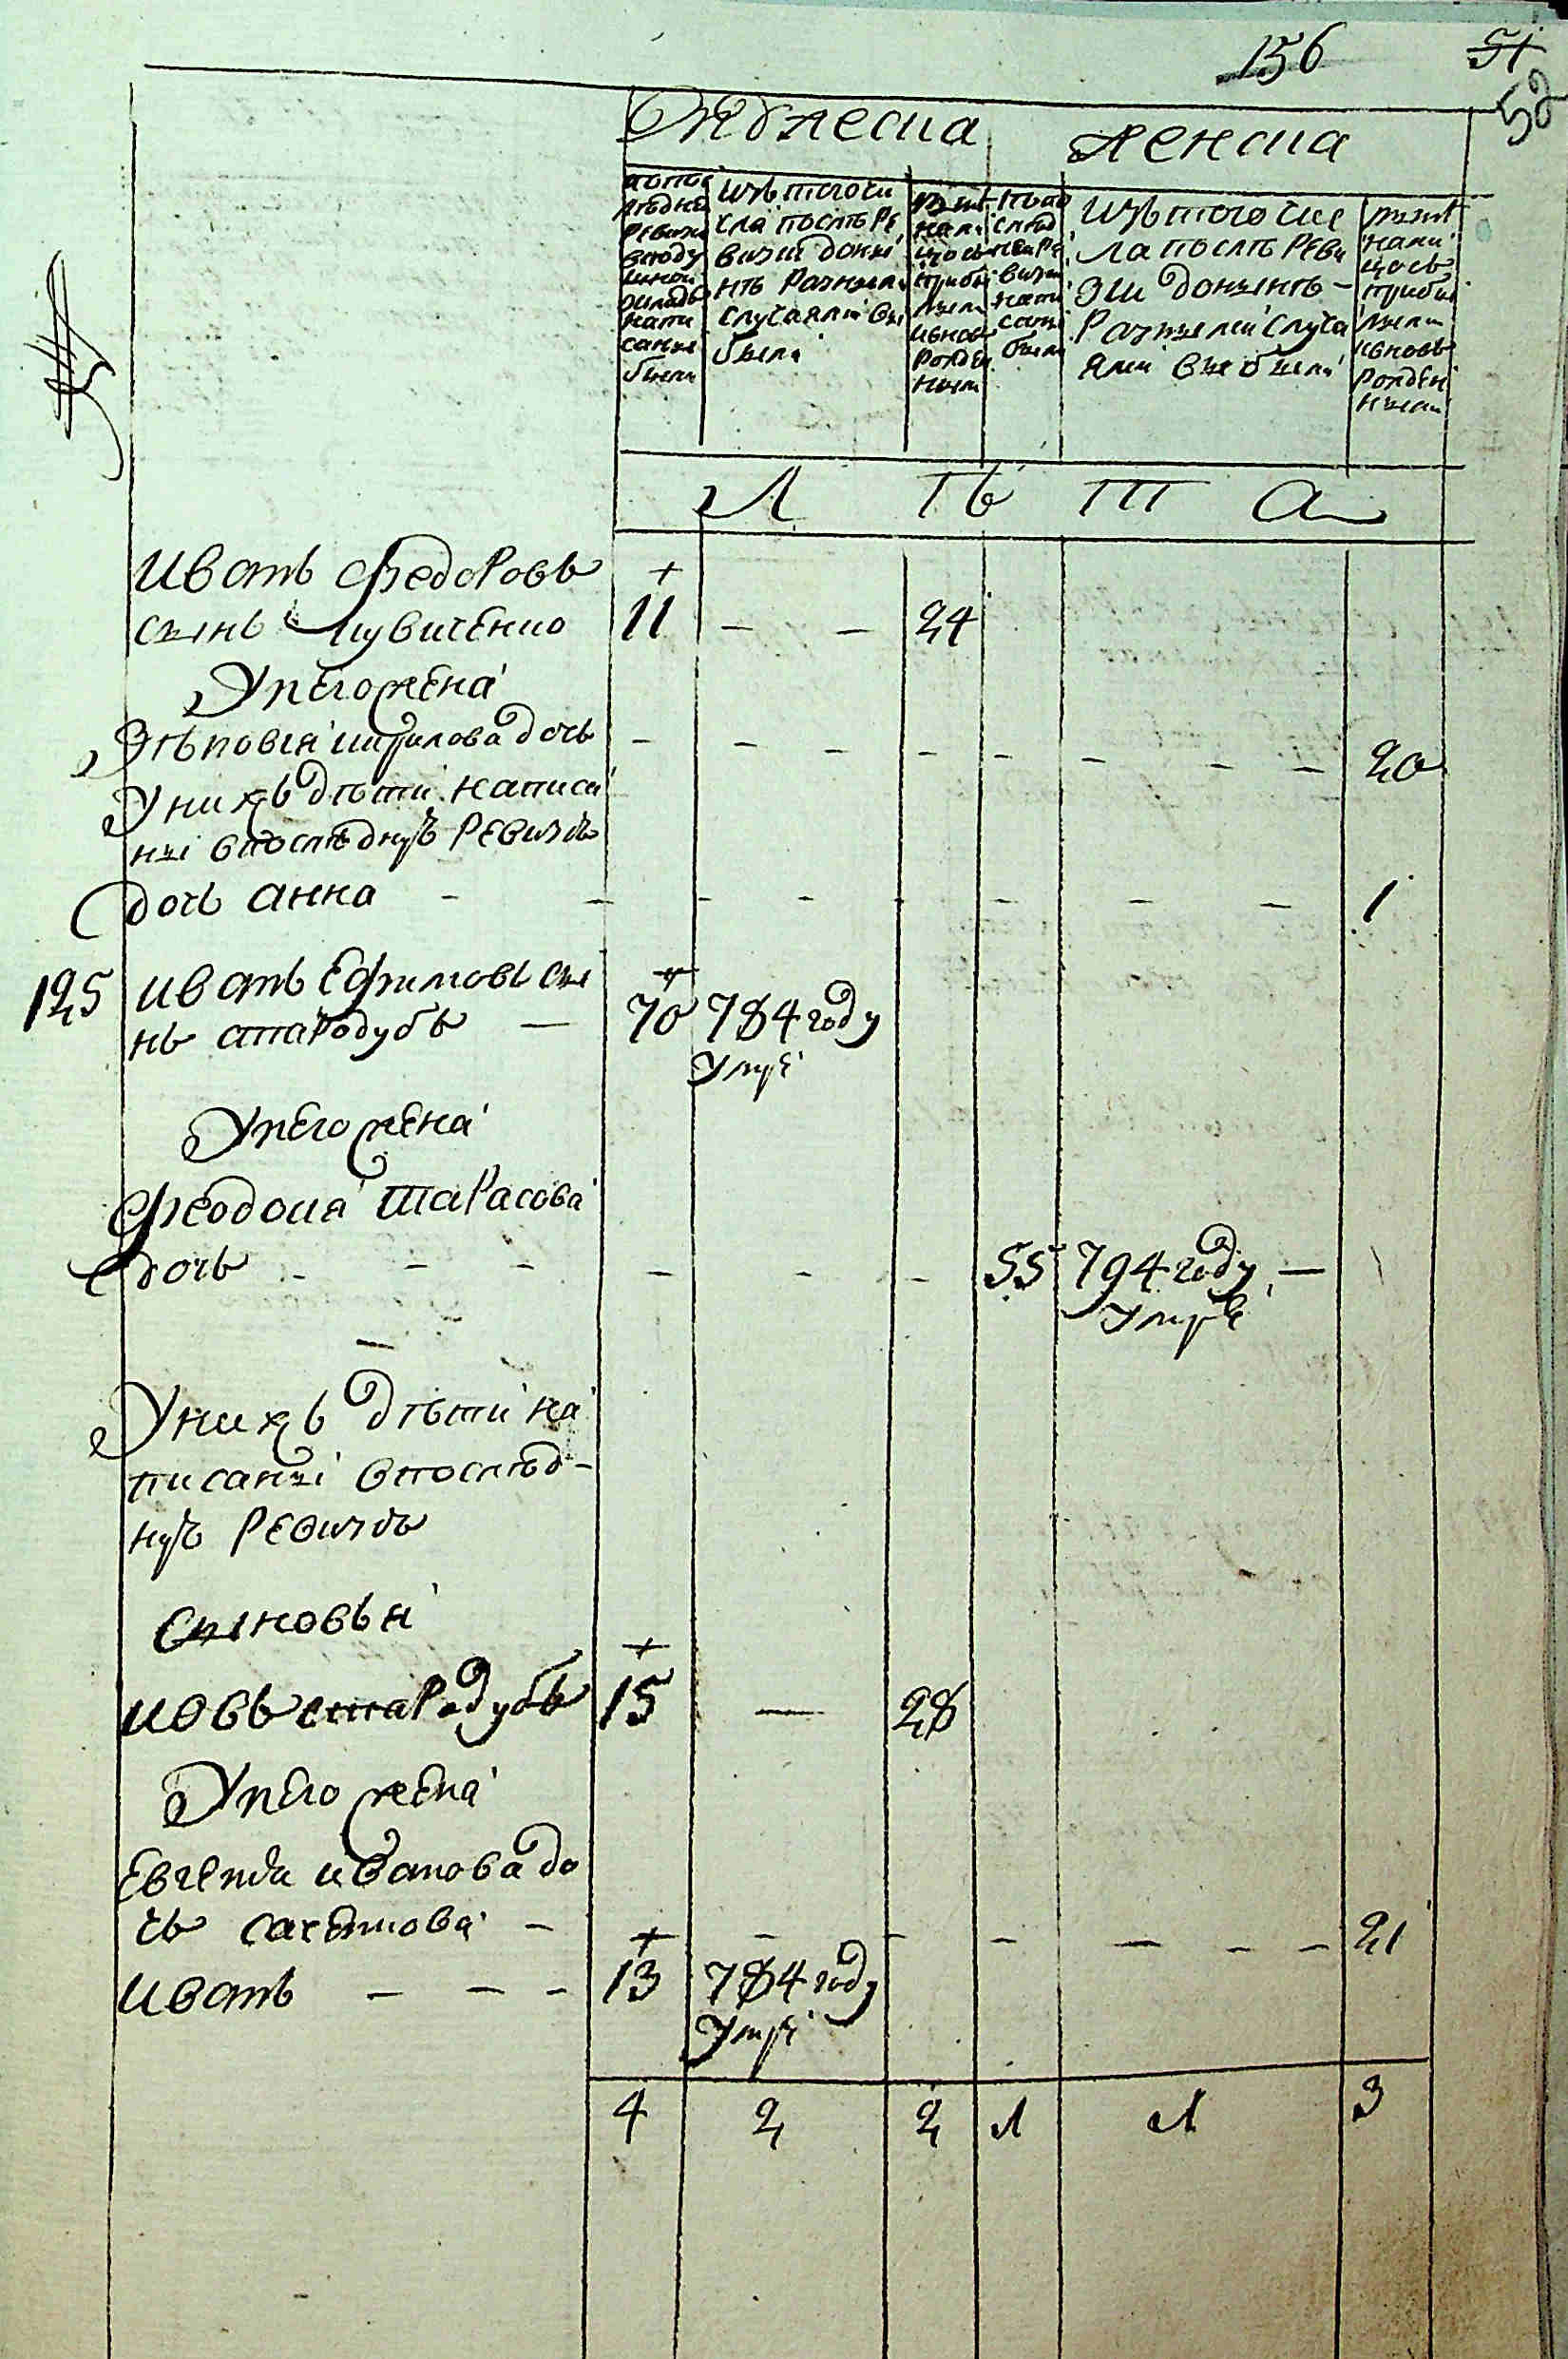 156
51
52
Мужеска
женска
попос
лѣдней
ревизии
споду
шной
окладъ
напи
санные
были
изъ того чи
сла послѣ ре
визии донынѣ
нѣ разными
случаями вы
были
нынѣ
нали
цо съ
прибы
лыми
и вновь
рожден
ными
по по
слѣд
ней ре
визии
напи
саны
были
изъ того чис
ла послѣ реви
зии донынѣ
разными случа
ями выбыли
нынѣ
нали
цось
прибы
лыми
и вновь
рожден
ными
Л ѣ т а
Иванъ Федоровъ
сынъ
11 — — 24
У него жена
дочь — — — — — — — — 20
У нихъ дѣти написа
ны впослѣднуъ ревизъ
дочь анна — — — — — — — — 1
125 Иванъ Ефимовъ сы
нъ стародубъ — 70 784 году
умре
У него жена
Феодосия тарасова
дочь — — — — — — 55 794 году —
умре
У нихъ дѣти на
писаны впослѣд-
нуъ ревизъ
Сыновья
Иовъ стародубъ 15 — 28
У него жена
Евгения иванова до
чь — — — — — — — 21
Иванъ — — — 13 784 году
умре
4 2 2 1 1 3